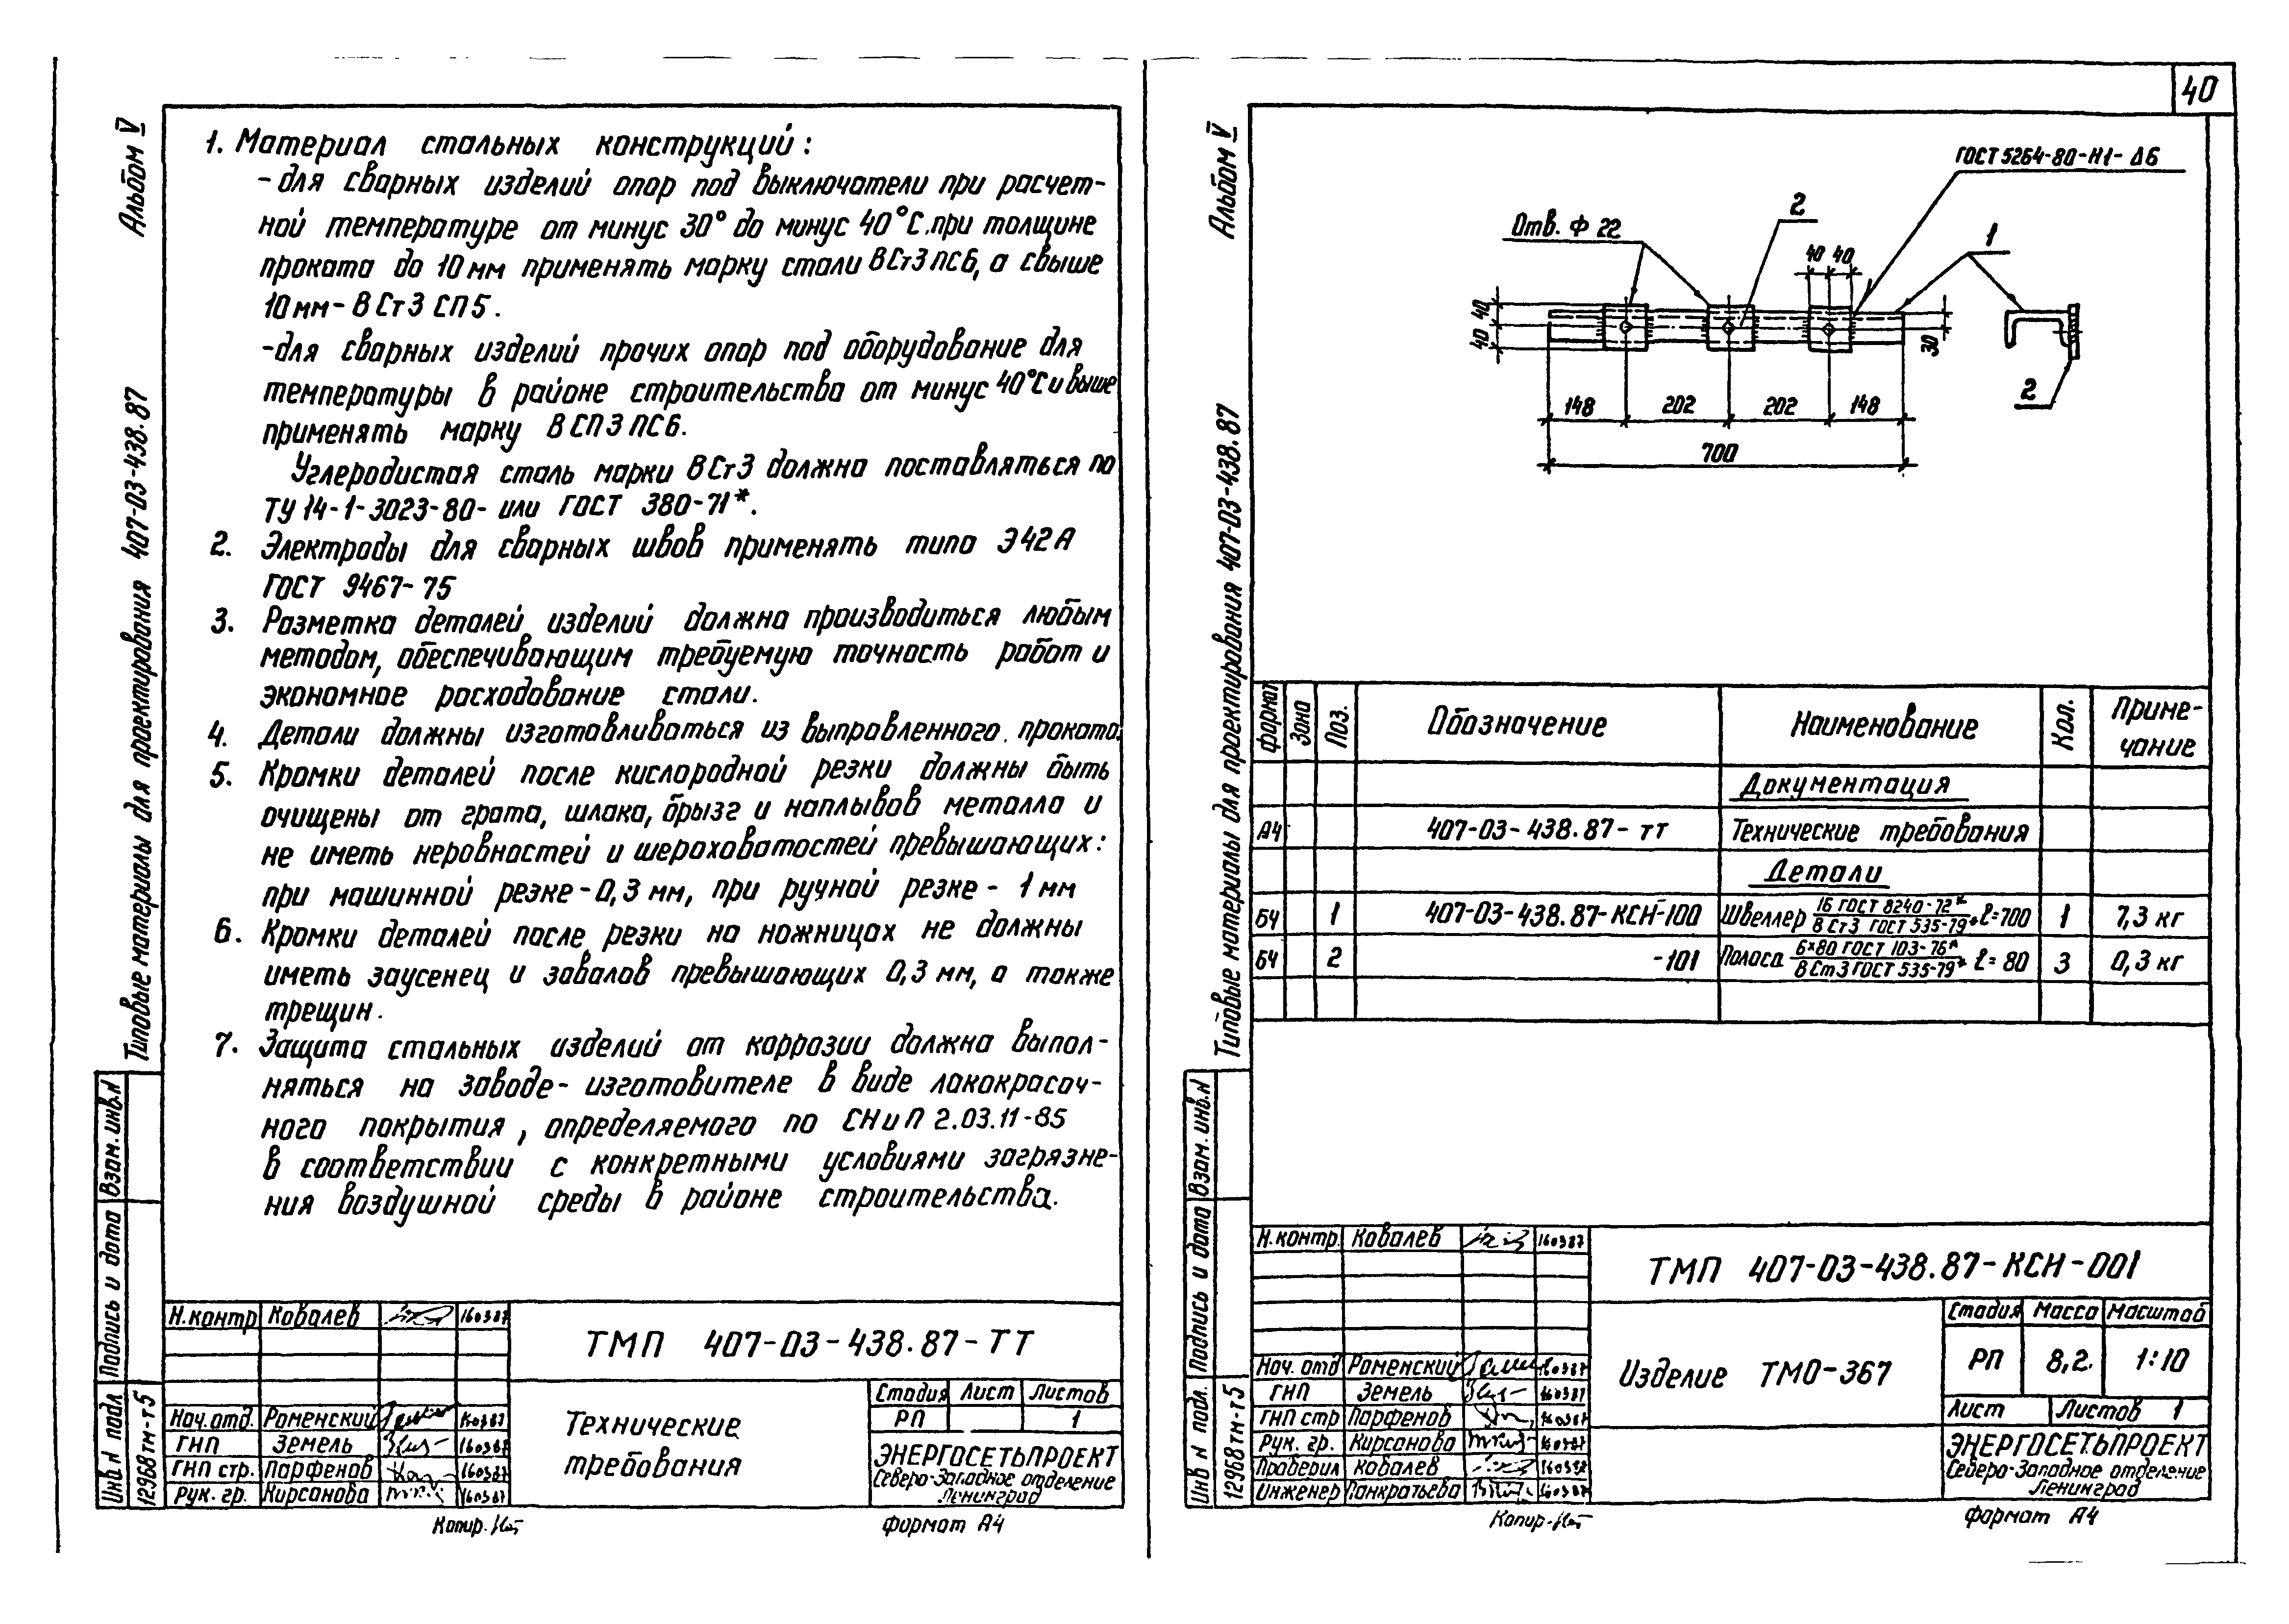 Альбом V
Типовые материалы для проектирования 407-03-438.87
1. Материал стальных конструкций:
- для сварных изделий опор под выключатели при расчет-
ной температуре от минус 30° до минус 40°С.при толщине
проката до 10 мм применять марку стали ВСт3пс6, а свыше
10 мм - ВСт3 СП5.
-для сварных изделий прочих опор под оборудование для
температуры в районе строительства от минус 40°С и выше
применять марку ВСП3ПС6.
Углеродистая сталь марки ВСт3 должна поставляться по
ТУ 14-1-3023-80- или ГОСТ 380-71*.
2. Электроды для сварных швов применять типа Э42А
ГОСТ 9467-75
3. Разметка деталей изделий должна производиться любым
методом, обеспечивающим требуемую точность работ и
экономное расходование стали.
4. Детали должны изготавливаться из выправленного. проката.
5. Кромки деталей после кислородной резки должны быть
очищены от грата, шлака, брызг и наплывов металла и
не иметь неровностей и шероховатостей превышающих:
при машинной резке - 0,3 мм, при ручной резке - 1 мм
6. Кромки деталей после резки на ножницах не должны
иметь заусенец и завалов превышающих 0,3 мм, а также
трещин.
7. Защита стальных изделий от коррозии должна выпол-
няться на заводе-изготовителе в виде лакокрасоч-
ного покрытия, определяемого по СНиП 2.03.11-85
в соответствии с конкретными условиями загрязне-
ния воздушной среды в районе строительства.
Взам. инв.N
Подпись и дата
Инв N подл
12968тм-т5
Н.контр Ковалев 160387
ТМП 407-03-438.87-ТТ
Нач.отд. Роменский 160387
ГНП Земель 160387
ГНП стр. Парфенов 160387
Рук. гр. Кирсанова 160387
Технические
требования
Стадия Лист Листов
РП 1
ЭНЕРГОСЕТЬПРОЕКТ
Северо-Западное отделение
Ленинград
Копир.
Формат А4
40
Альбом V
Типовые материалы для проектирования 407-03-438.87
ГОСТ 5264-80-Н1-Δ6
Отв. Ф 22
2
1
40 40
40 40
30
2
148 202 202 148
700
Формат Зона Поз. Обозначение Наименование Кол. Приме-
чание
Документация
А4 407-03-438.87-ТТ Технические требования
Детали
БЧ 1 407-03-438.87-КСН-100 Швеллер 16 ГОСТ 8240-72* / ВСт3 ГОСТ 535-79* ℓ=700 1 7,3 кг
БЧ 2 -101 Полоса 6×80 ГОСТ 103-76* / ВСт3 ГОСТ 535-79* ℓ=80 3 0,3 кг
Взам. инв.N
Подпись и дата
Инв N подл.
12968тм-т5
Н.контр. Ковалев 160387
ТМП 407-03-438.87-КСН-001
Нач. отд Роменский 160387
ГНП Земель 160387
ГНП стр Парфенов 160387
Рук. гр. Кирсанова 160387
Проверил Ковалев 160387
Инженер Панкратьева 160387
Изделие ТМО-367
Стадия Масса Масштаб
РП 8,2. 1:10
Лист Листов 1
ЭНЕРГОСЕТЬПРОЕКТ
Северо-Западное отделение
Ленинград
Копир.
Формат А4